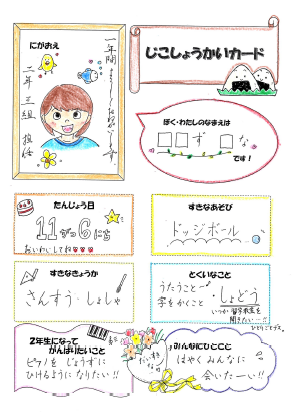 じこしょうかいカード
にがおえ
一年間
よろしくおねがいします。
二年三組 担任
ぼく・わたしのなまえは
□□ず□な
です!
たんじょう日
11がつ6にち
おいわいしてね
すきなあそび
ドッジボール
すきなきょうか
さんすう・しょしゃ
とくいなこと
うたうこと・
字をかくこと・しょどう
いつか 習字教室を
開きたい…!!
ひとりごとデス。
2年生になって
がんばりたいこと
ピアノを じょうずに
ひけるように なりたい!!
みんなにひとこと
はやく みんなに
会いたーい!!